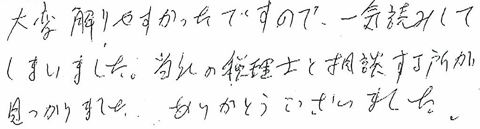 大変解りやすかったですので、一気読みして
しまいました。当社の税理士と相談する所が
見つかりました。ありがとうございました。